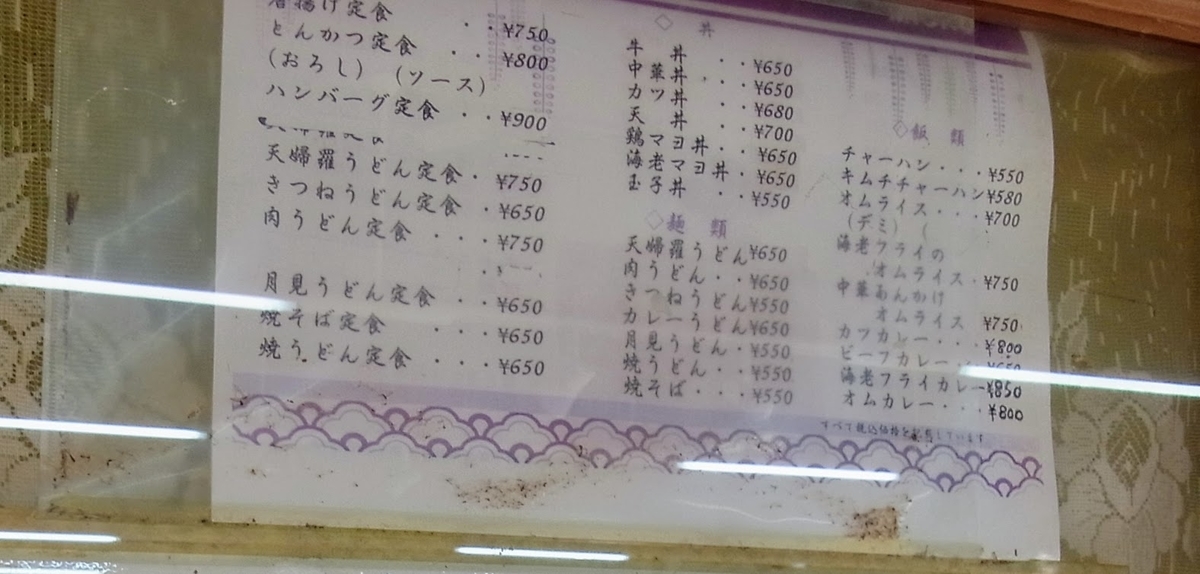 唐揚げ定食 ・・¥750
とんかつ定食 ・・¥800
(おろし) (ソース)
ハンバーグ定食 ・・¥900
天婦羅うどん定食・¥750
きつねうどん定食 ・¥650
肉うどん定食 ・・・¥750
月見うどん定食 ・・¥650
焼そば定食 ・・・¥650
焼うどん定食 ・・・¥650
◇ 丼
牛 丼 ・・¥650
中華丼・・・¥650
カツ丼 ・・¥680
天 丼 ・・¥700
鶏マヨ丼・・¥650
海老マヨ丼・¥650
玉子丼 ・・¥550
◇麺 類
天婦羅うどん¥650
肉うどん・・¥650
きつねうどん¥550
カレーうどん¥650
月見うどん・¥550
焼うどん・・¥550
焼そば・・・¥550
◇飯 類
チャーハン・・・¥550
キムチチャーハン¥580
オムライス・・・¥700
(デミ) (
海老フライの
オムライス・¥750
中華あんかけ
オムライス ¥750
カツカレー・・・¥800
ビーフカレー・・
海老フライカレー¥850
オムカレー・・・¥800
すべて税込価格を記載しています